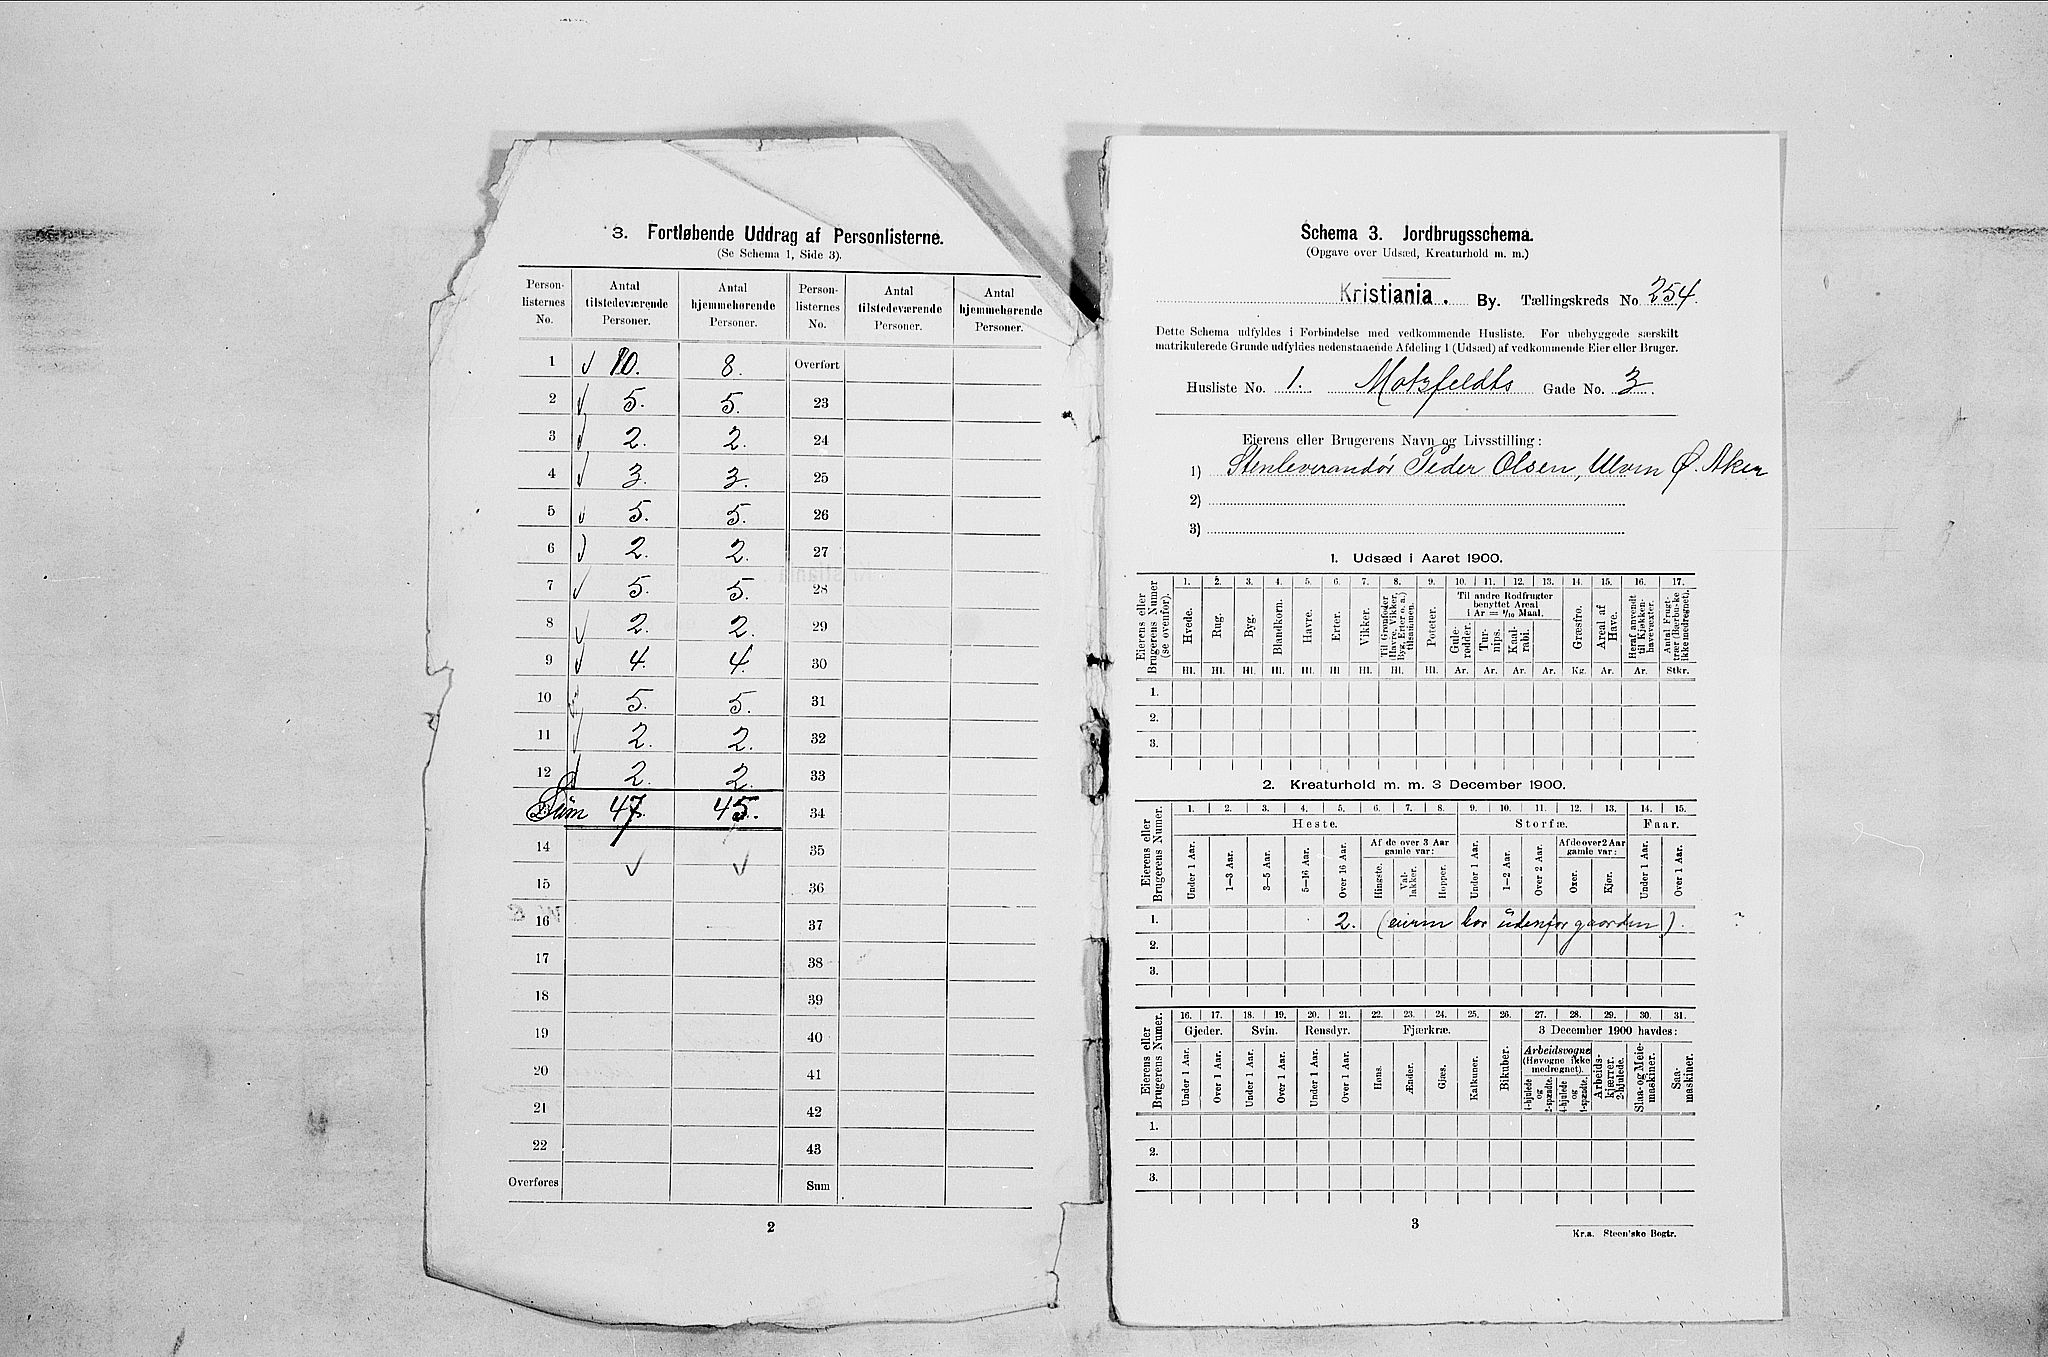 3. Fortløbende Uddrag af Personlisterne.
(Se Schema 1, Side 3).
Person-listernes No. | Antal tilstedeværende Personer. | Antal hjemmehørende Personer. | Person-listernes No. | Antal tilstedeværende Personer. | Antal hjemmehørende Personer.
1 | √ 10. | 8. | Overført
2 | √ 5. | 5. | 23
3 | √ 2. | 2. | 24
4 | √ 3. | 3. | 25
5 | √ 5. | 5. | 26
6 | √ 2. | 2. | 27
7 | √ 5. | 5. | 28
8 | √ 2. | 2. | 29
9 | √ 4. | 4. | 30
10 | 5. | 5. | 31
11 | √ 2. | 2. | 32
12 | √ 2. | 2. | 33
Sum | 47. | 45. | 34
14 | √ | √ | 35
15 | 36
16 | 37
17 | 38
18 | 39
19 | 40
20 | 41
21 | 42
22 | 43
Overføres | Sum
2
Schema 3. Jordbrugsschema.
(Opgave over Udsæd, Kreaturhold m. m.)
Kristiania. By. Tællingskreds No. 254.
Dette Schema udfyldes i Forbindelse med vedkommende Husliste. For ubebyggede særskilt
matrikulerede Grunde udfyldes nedenstaaende Afdeling 1 (Udsæd) af vedkommende Eier eller Bruger.
Husliste No. 1. Motzfeldts Gade No. 3.
Eierens eller Brugerens Navn og Livsstilling:
1) Stenleverandör Peder Olsen, Ulven Ø. Aker
2)
3)
1. Udsæd i Aaret 1900.
Eierens eller Brugerens Numer (se ovenfor).
1. 2. 3. 4. 5. 6. 7. 8. 9. 10. 11. 12. 13. 14. 15. 16. 17.
Hvede. | Rug. | Byg. | Blandkorn. | Havre. | Erter. | Vikker. | Til Grønfoder (Havre, Vikker, Byg, Erter o. a.) tilsammen. | Poteter. | Til andre Rodfrugter benyttet Areal i Ar = 1/10 Maal. | Gule-rødder. | Tur-nips. | Kaal-rabi. | Græsfrø. | Areal af Have. | Heraf anvendt til Kjøkken-havevæxter. | Antal Frugt-trær (Bærbuske ikke medregnet).
Hl. Hl. Hl. Hl. Hl. Hl. Hl. Hl. Hl. Ar. Ar. Ar. Ar. Kg. Ar. Ar. Stkr.
1.
2.
3.
2. Kreaturhold m. m. 3 December 1900.
Eierens eller Brugerens Numer.
1. 2. 3. 4. 5. 6. 7. 8. 9. 10. 11. 12. 13. 14. 15.
Heste. | Storfæ. | Faar.
Under 1 Aar. | 1—3 Aar. | 3—5 Aar. | 5—16 Aar. | Over 16 Aar. | Af de over 3 Aar gamle var: | Hingste. | Val-lakker. | Hopper. | Under 1 Aar. | 1—2 Aar. | Over 2 Aar. | Af de over 2 Aar gamle var: | Oxer. | Kjør. | Under 1 Aar. | Over 1 Aar.
1. 2. (eieren bor udenfor gaarden). ?
2.
3.
Eierens eller Brugerens Numer.
16. 17. 18. 19. 20. 21. 22. 23. 24. 25. 26. 27. 28. 29. 30. 31.
Gjeder. | Svin. | Rensdyr. | Fjærkræ. | Bikuber. | 3 December 1900 havdes:
Under 1 Aar. | Over 1 Aar. | Under 1 Aar. | Over 1 Aar. | Under 1 Aar. | Over 1 Aar. | Høns. | Ænder. | Gjæs. | Kalkuner. | Arbeidsvogne (Høvogne ikke medregnet). | 4-hjulede og 2-spændte. | 4-hjulede og 1-spændte. | Arbeids-kjærrer. 2-hjulede. | Slaa- og Meie-maskiner. | Saa-maskiner.
1.
2.
3.
3
Kr.a. Steen'ske Bogtr.